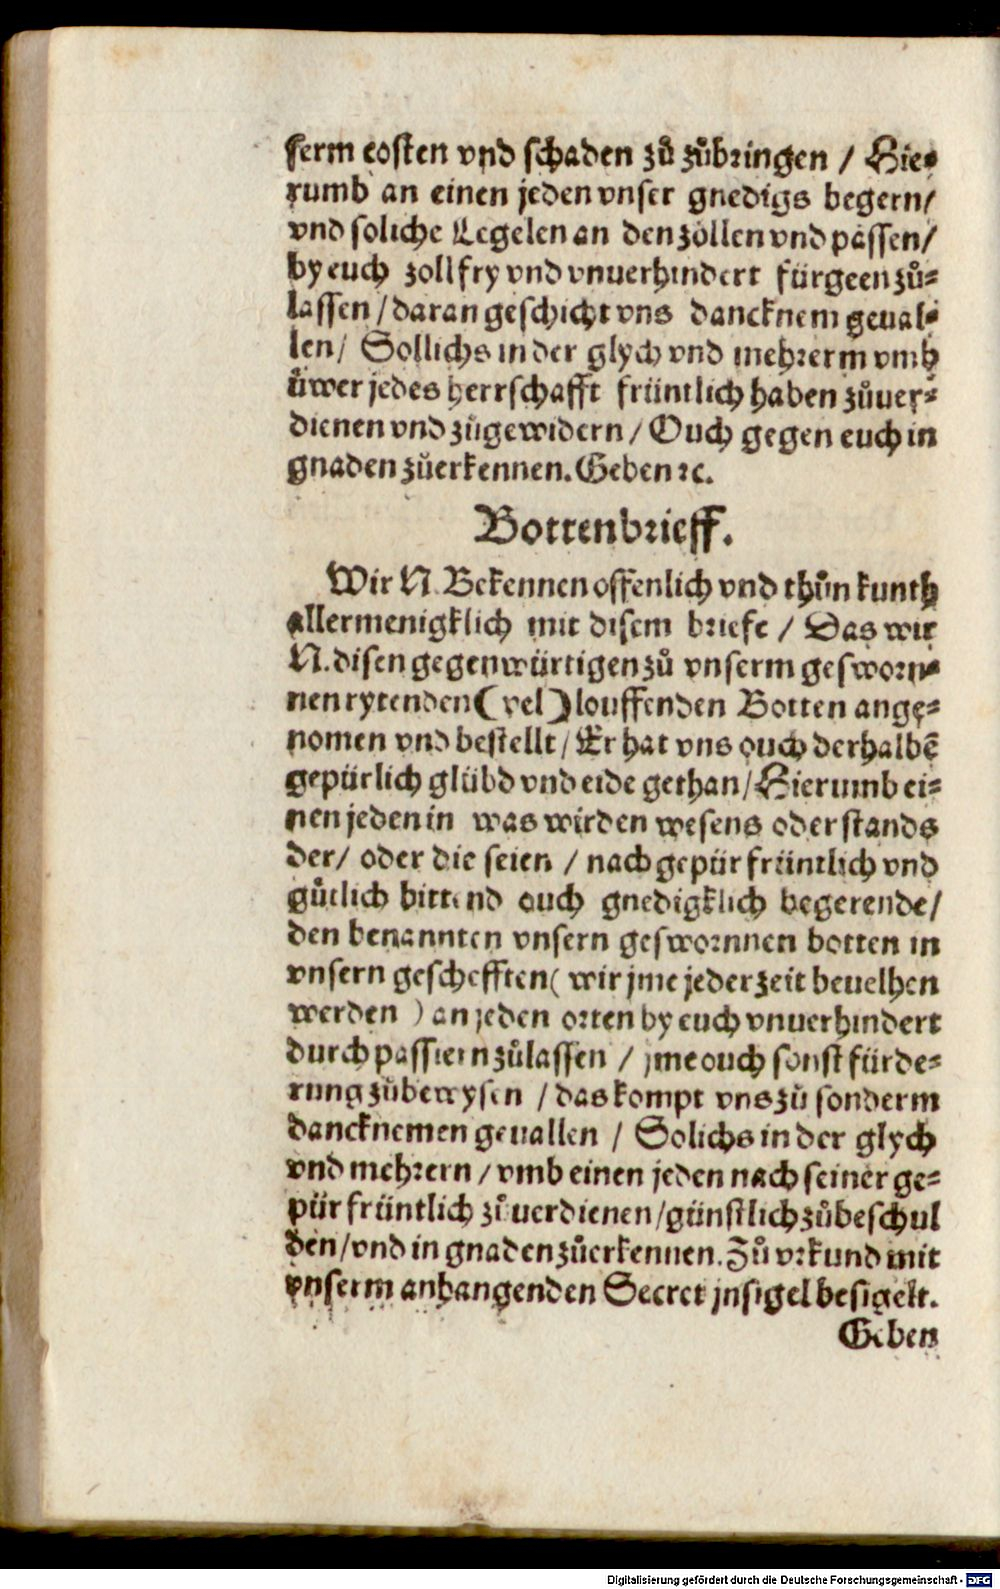 ſerm coſten vnd ſchaden zů zůbꝛingen / Hie⸗
rumb an einen jeden vnſer gnedigs begern/
vnd ſoliche Legelen an den zöllen vnd päſſen/
by euch zollfry vnd vnuerhindert fürgeen zů⸗
laſſen / daran geſchicht vns dancknem geual⸗
len / Sollichs in der glych vnd mehꝛerm vmb
üwer jedes herrſchafft früntlich haben zůuer⸗
dienen vnd zůgewidern / Ouch gegen euch in
gnaden zůerkennen. Geben ꝛc.
Bottenbꝛieff.
Wir N. Bekennen offenlich vnd thůn kunth
allermenigklich mit diſem bꝛiefe / Das wir
N. diſen gegenwürtigen zů vnſerm geſwoꝛn⸗
nen rytenden (vel) louffenden Botten ange⸗
nomen vnd beſtellt / Er hat vns ouch derhalbē
gepürlich glübd vnd eide gethan / Hierumb ei⸗
nen jeden in was wirden weſens oder ſtands
der / oder die ſeien / nach gepür früntlich vnd
gůtlich bittend ouch gnedigklich begerende /
den benannten vnſern geſwoꝛnnen botten in
vnſern geſchefften ( wir jme jeder zeit beuelhen
werden ) an jeden oꝛten by euch vnuerhindert
durch paſſiern zůlaſſen / jme ouch ſonſt fürde⸗
rung zůbewyſen / das kompt vns zů ſonderm
dancknemen geuallen / Solichs in der glych
vnd mehꝛern / vmb einen jeden nach ſeiner ge⸗
pür früntlich zůuerdienen / günſtlich zůbeſchul
den / vnd in gnaden zůerkennen. Zů vꝛkund mit
vnſerm anhangenden Secret jnſigel beſigelt.
Geben
Digitalisierung gefördert durch die Deutsche Forschungsgemeinschaft - DFG